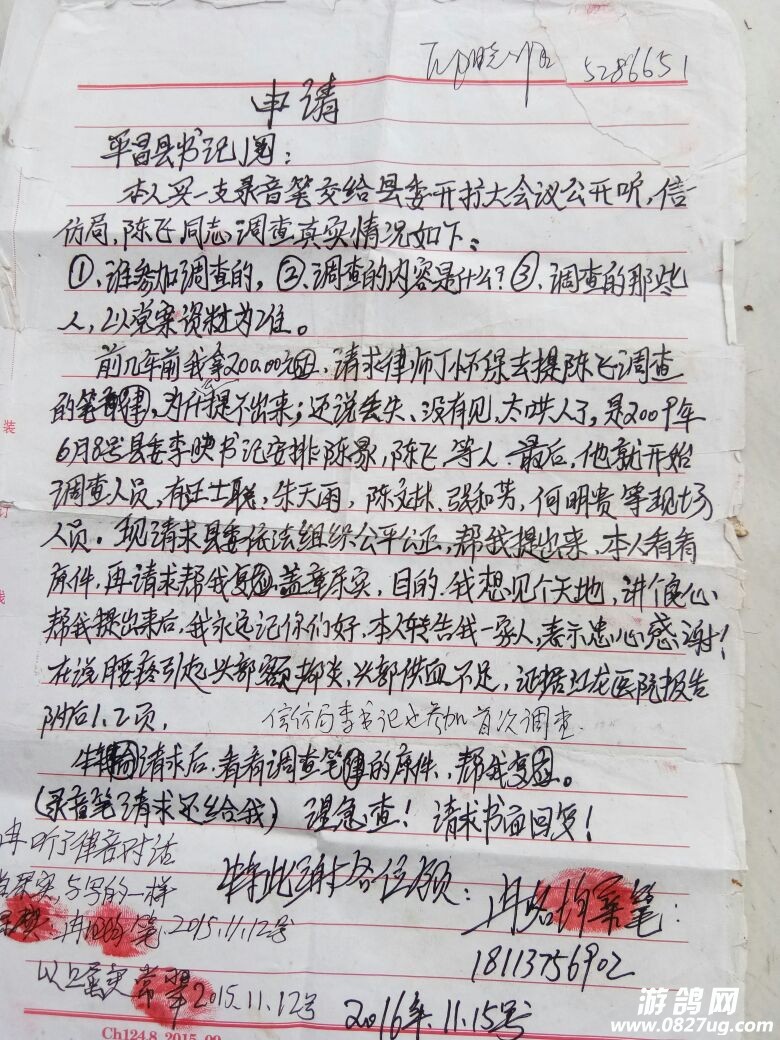 5286651
申请
平昌县书记阅：
本人买一支录音笔交给县委开扩大会议公开听，信
访局，陈飞同志调查真实情况如下：
①、谁参加调查的，②、调查的内容是什么？③、调查的那些
人，以党案资料为准。
前几年前我拿20000元，请求律师丁怀保去提陈飞调查
的笔，为什提不出来；还说丢失、没有见，太哄人了，是2009年
6月8号县委李映书记安排陈景，陈飞，等人。最后，他就开始
调查人员，有汪士联，朱天雨，陈文林，张和芳，何明贵等现场
人员。现请求县委依法组织公平公正，帮我提出来，本人看看
原件，再请求帮我复印盖章乐实，目的，我想见个天地，讲个良心
帮我提出来后，我永远记你们好，本人转告我一家人，表示忠心感谢！
在说腰疼引起头部额抑炎，头部供血不足，证据红龙医院报告
附后1、2页。
信访局李书记也参加首次调查
请求后，看看调查笔的原件、帮我复。
（录音笔请求还给我）谨急查！请求书面回复！
听了律音对话
实与写的一样
笔 2015.11.12号
特此谢各位领：
笔：
18113756902
以上 2015.11.12号
2016年.11.15号
Ch124.8 2015.09
装
订
线
游鸽网
www.0827ug.com